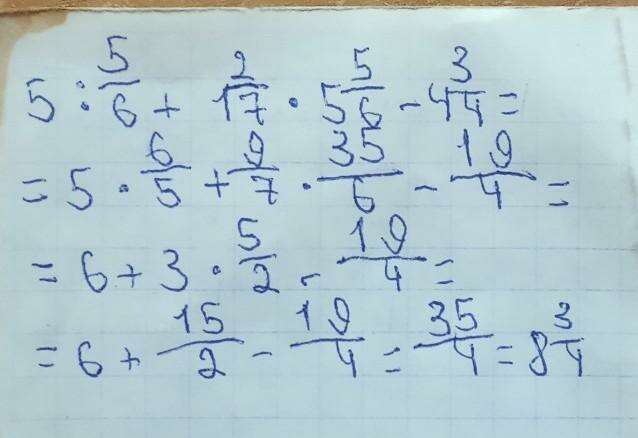 5 : 5/6 + 1 2/7 · 5 5/6 - 4 3/4 =
= 5 · 6/5 + 9/7 · 35/6 - 19/4 =
= 6 + 3 · 5/2 - 19/4 =
= 6 + 15/2 - 19/4 = 35/4 = 8 3/4